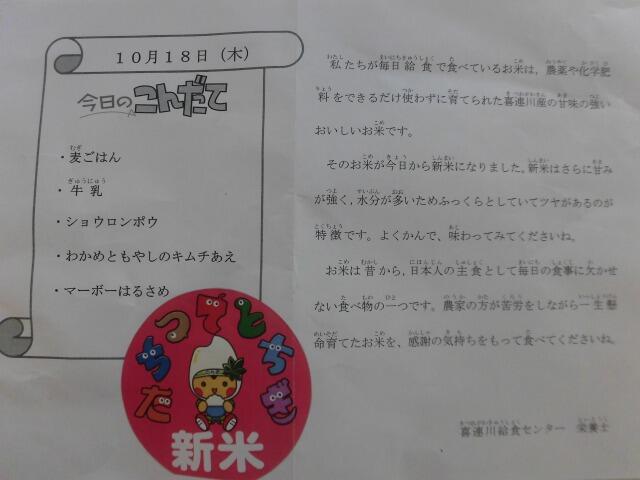 10月18日(木)
今日のこんだて
・麦ごはん
・牛乳
・ショウロンポウ
・わかめともやしのキムチあえ
・マーボーはるさめ
たべちってとちぎ
新米
私たちが毎日給食で食べているお米は,農薬や化学肥
料をできるだけ使わずに育てられた喜連川産の甘味の強い
おいしいお米です。
そのお米が今日から新米になりました。新米はさらに甘み
が強く,水分が多いためふっくらとしていてツヤがあるのが
特徴です。よくかんで、味わってみてくださいね。
お米は昔から,日本人の主食として毎日の食事に欠かせ
ない食べ物の一つです。農家の方が苦労をしながら一生懸
命育てたお米を、感謝の気持ちをもって食べてくださいね。
喜連川給食センター 栄養士